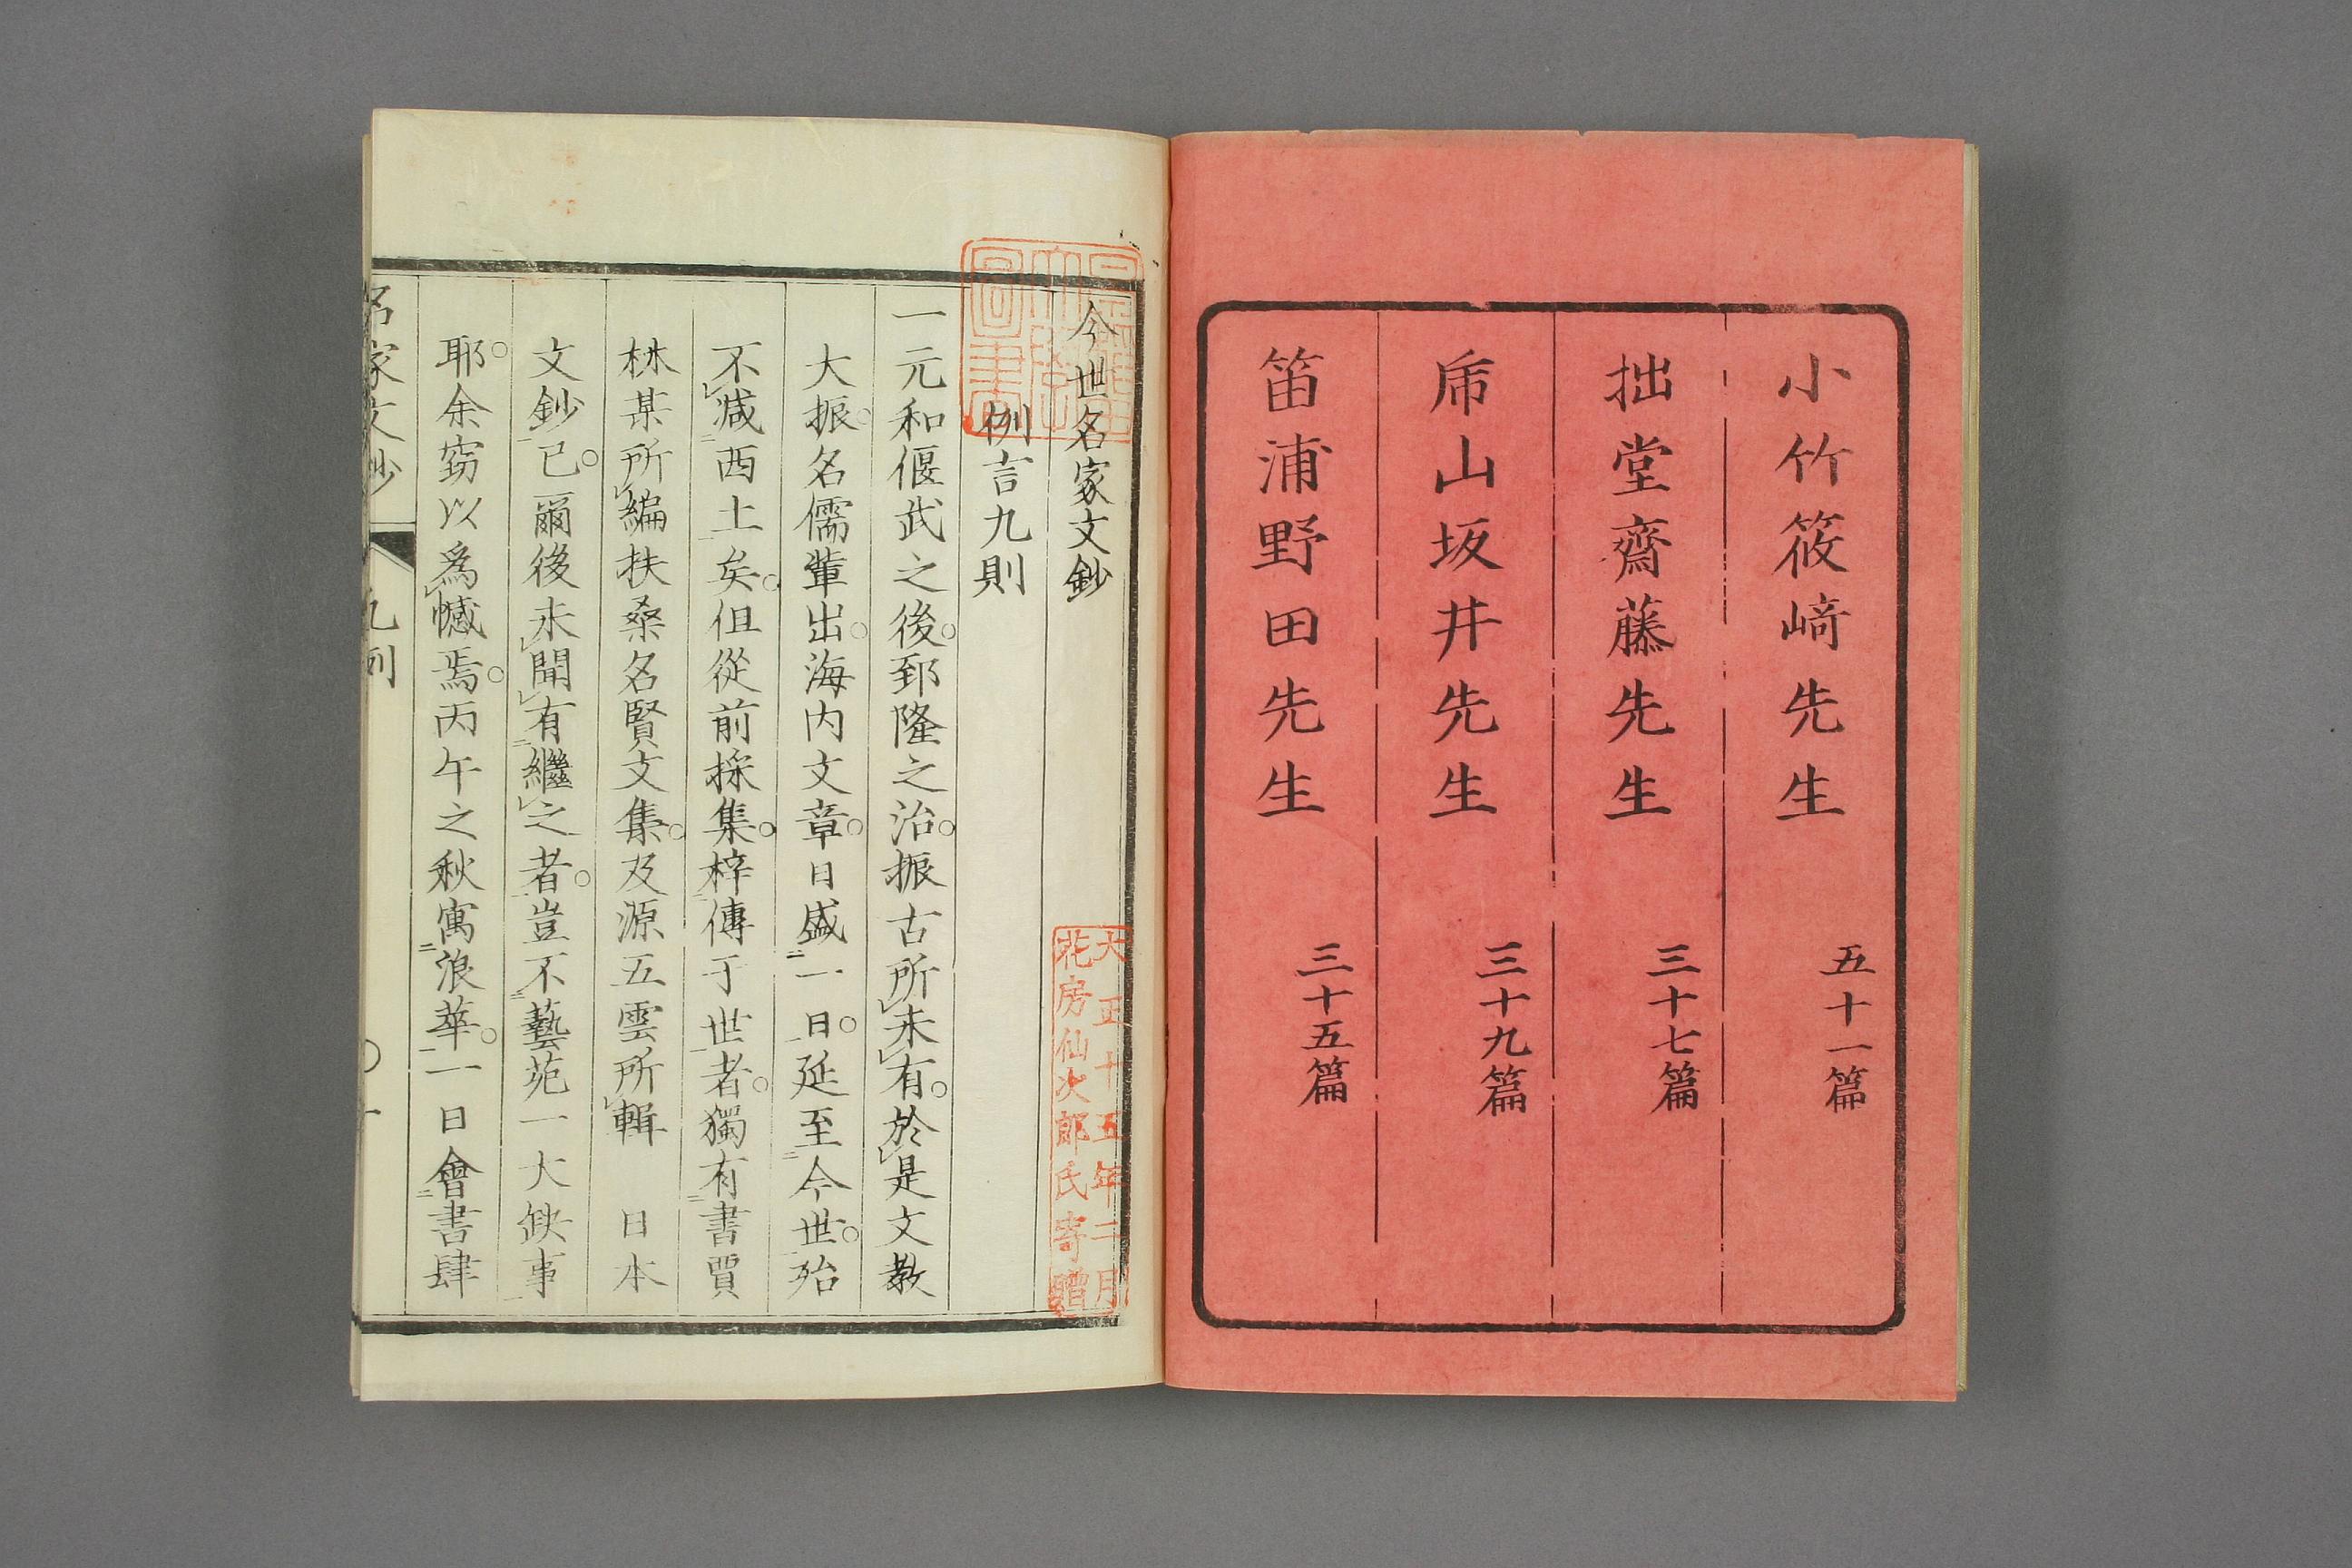 小竹筱﨑先生 五十一篇
拙堂齋藤先生 三十七篇
虎山坂井先生 三十九篇
笛浦野田先生 三十五篇
今世名家文鈔
例言九則
一元和偃武之後。郅隆之治。振古所未有。於是文教
大振。名儒輩出。海內文章。日盛一日。延至今世。殆
不減西土矣。但從前採集。梓傳于世者。獨有書賈
林某所編扶桑名賢文集。及源五雲所輯 日本
文鈔已。爾後未聞有繼之者。豈不藝苑一大缺事
耶。余窃以爲憾焉。丙午之秋寓浪華。一日會書肆
名家文鈔 凡例 〇 一
大正十五年二月
花房仙次郎氏寄贈